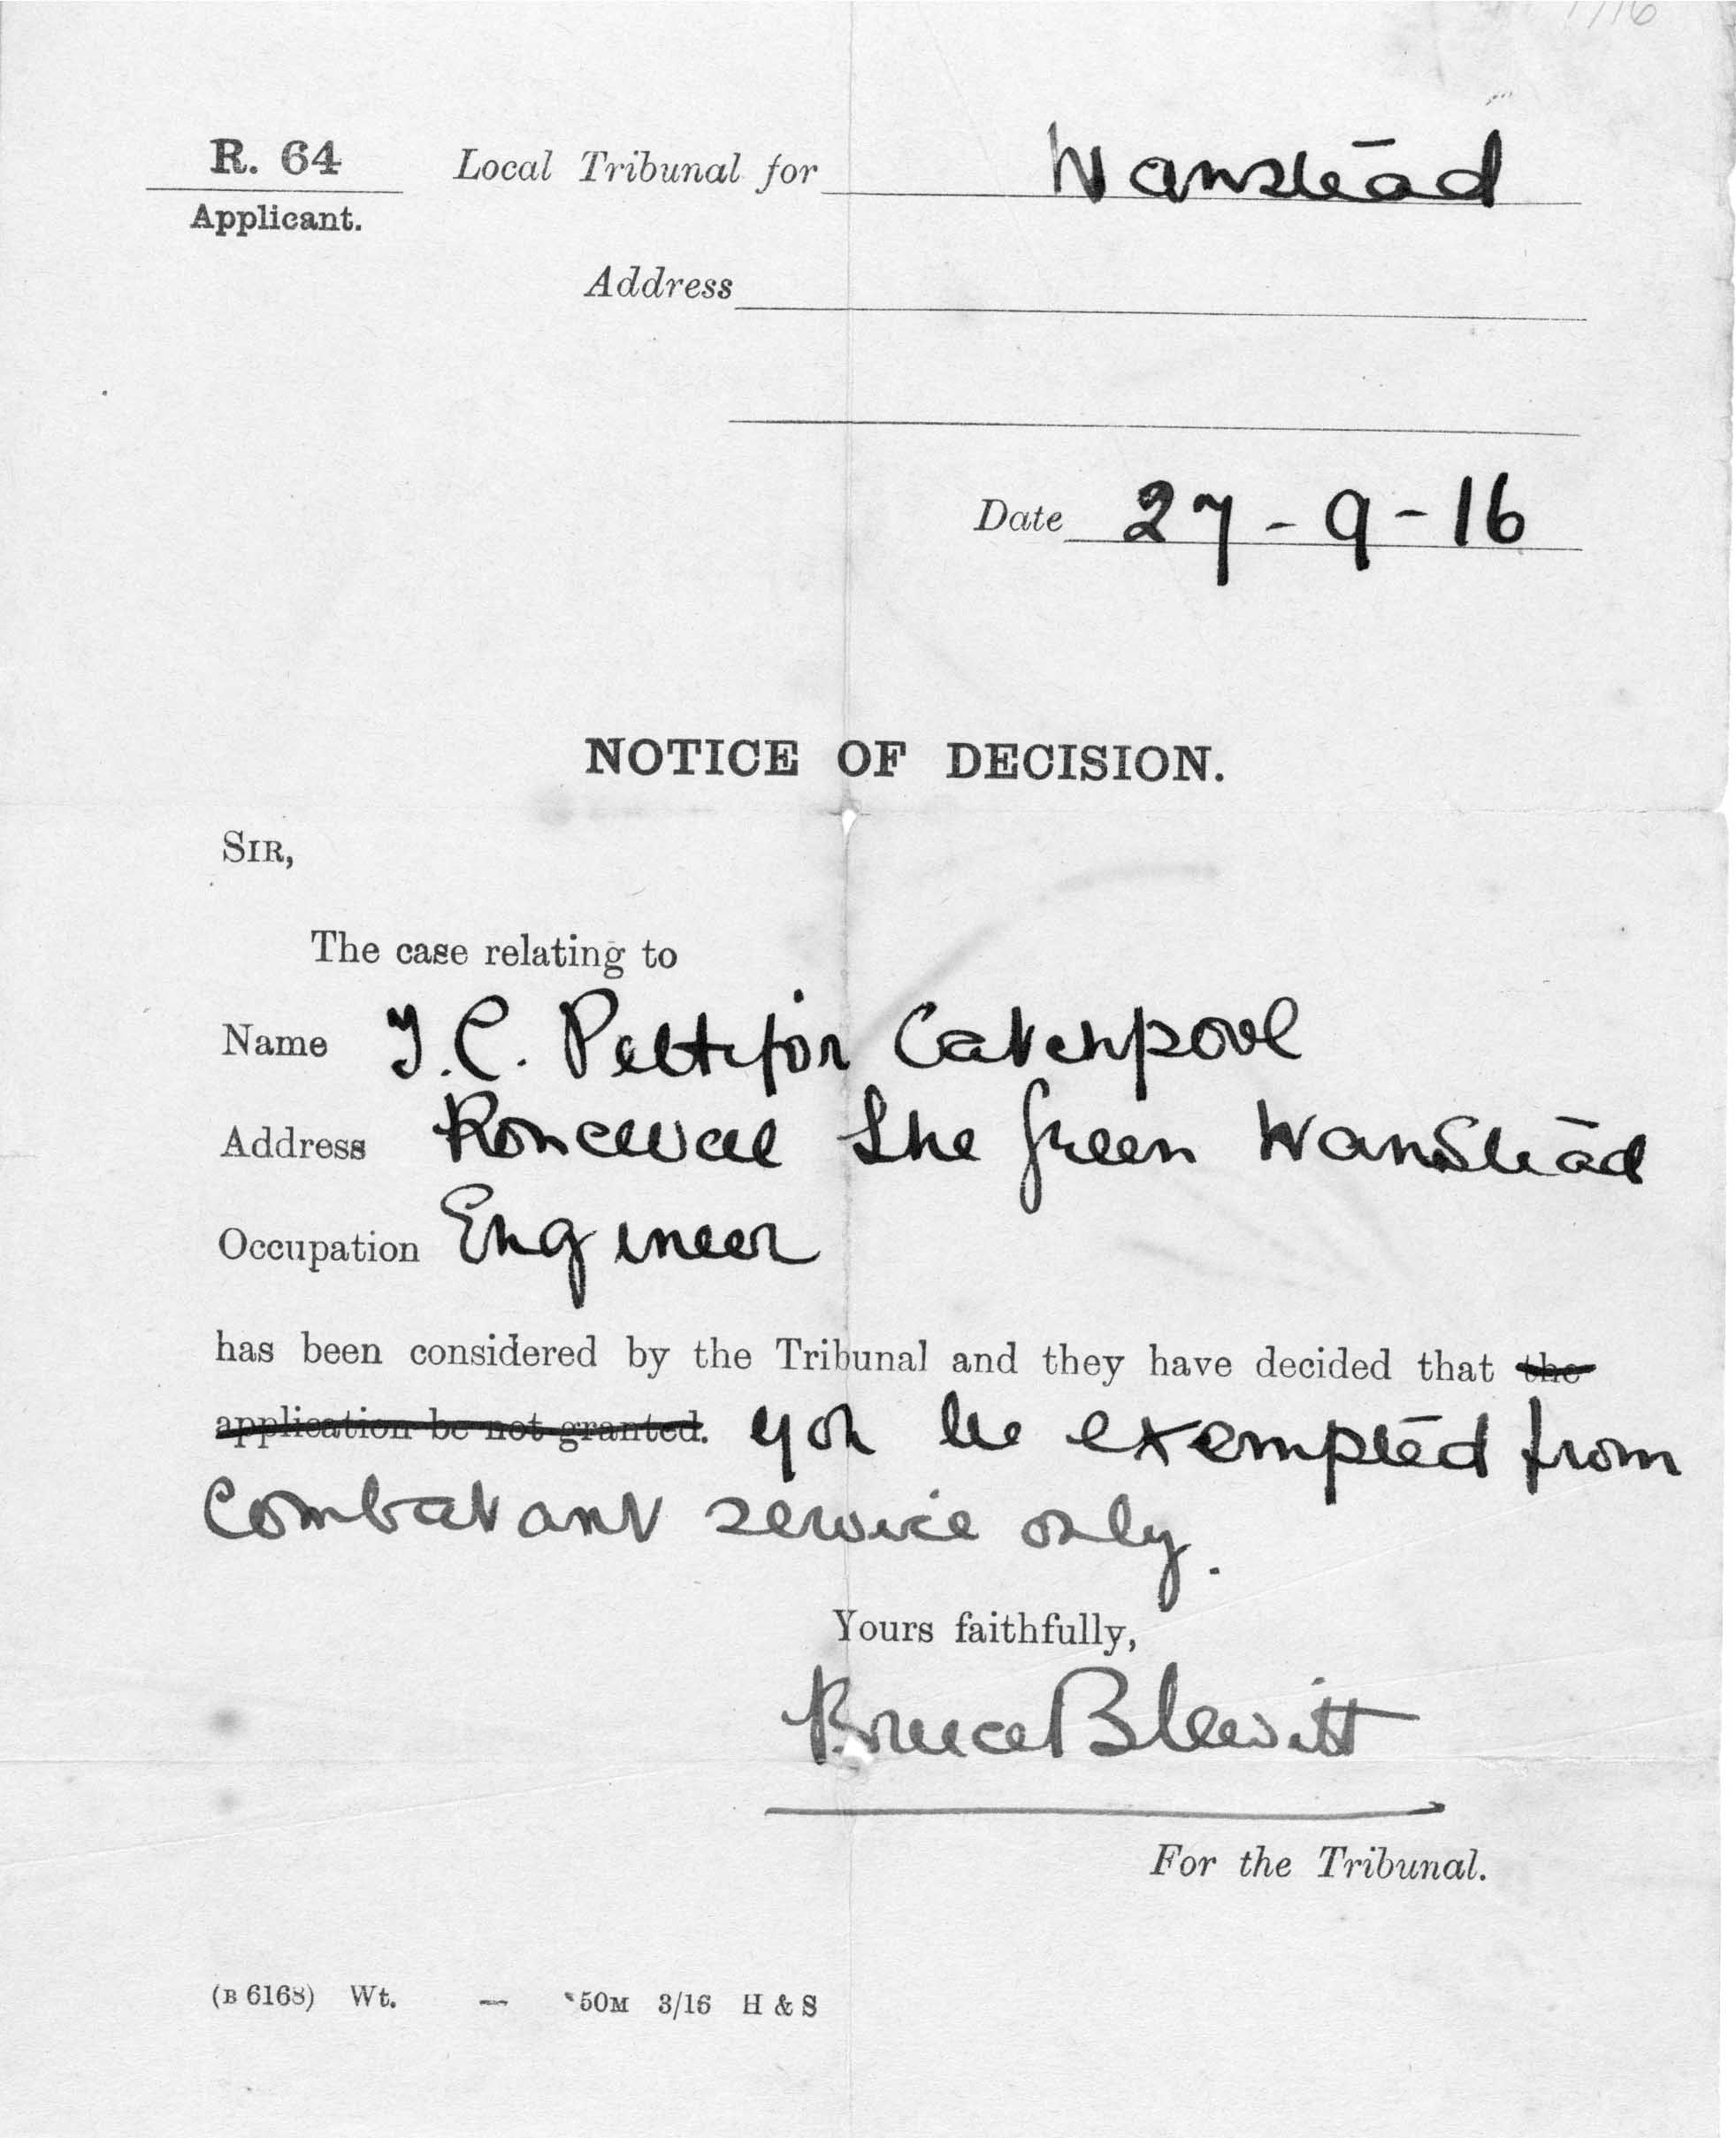 R. 64 Local Tribunal for Wanstead
Applicant.
Address
Date 27-9-16
NOTICE OF DECISION.
SIR,
The case relating to
Name T.C. Pettifor Catchpool
Address Ronceval The Green Wanstead
Occupation Engineer
has been considered by the Tribunal and they have decided that the
application be not granted. you be exempted from
Combatant service only.
Yours faithfully,
Bruce Blewitt
For the Tribunal.
(B 6168) Wt. — 50M 3/16 H & S